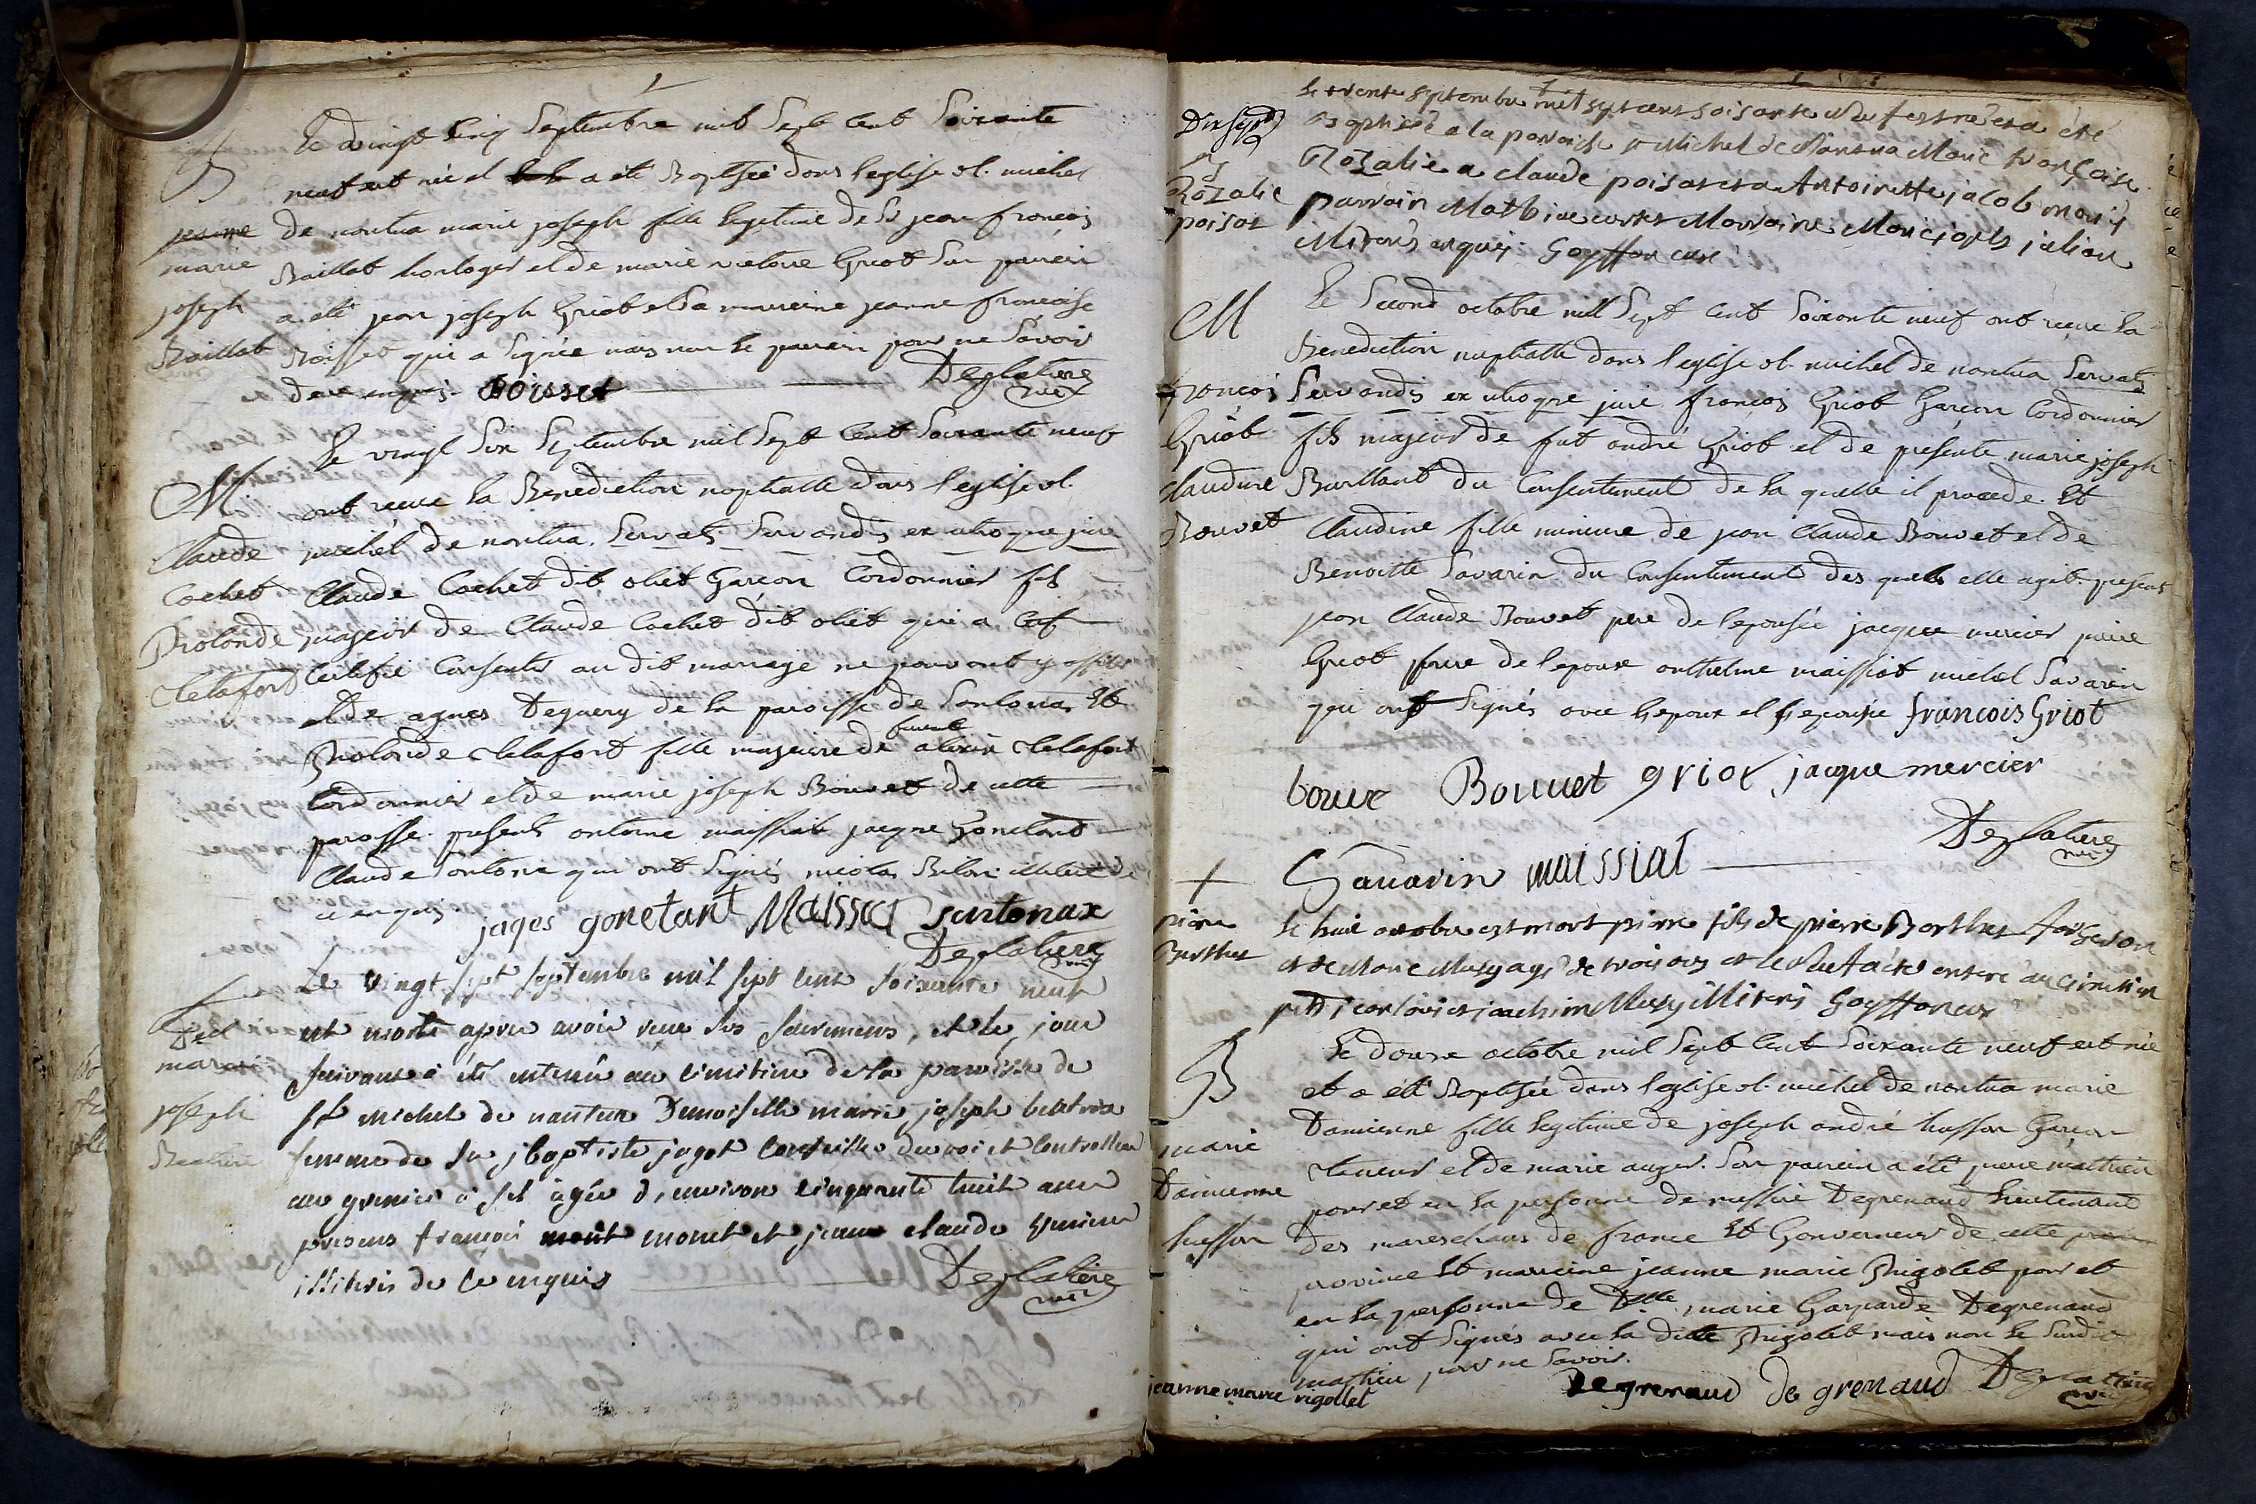 B
jeanne
marie
joseph
Baillat
Le vingt cinq Septembre mil Sept Cent Soixante
neuf est née et a été Baptisée dans l'eglise st. michel
de nantua marie joseph fille legitime de Sr jean francois
Baillat horloger et de marie victoire Griot Son parrein
a été jean joseph Griot et Sa marreine jeanne francoise
Boisset qui a Signée mais non le parrein pour ne Savoir
de ce enquis. Boisset Deglatiere
vic
M
Claude
Cochet
Rolande
Clelafort
Le vingt Six Septembre mil Sept Cent Soixante neuf
ont receue la Benediction nuptialle dans l'eglise st.
michel de nantua. Servatis Servandis ex utroque jure
Claude Cochet dit oliet Garcon Cordonnier fils
majeur de Claude Cochet dit oliet qui a
Certifié Consentir au dit mariage ne pouvant y assister
et de agnes Deguery de la paroisse de Et
Rolande Clelafort fille majeure de Clelafort
Cordonnier et de marie joseph Bouvet de cette
paroisse. presents antoine maissiat jacque Gonetant
Claude qui ont Signés nicolas illiteré de
ce enquis
jaques gonetant Maissiat santonax
Deglatiere
vic
Del
marie
joseph
Beatrix
Le vingt sept septembre mil sept cent soixante neuf
est morte apres avoir reçue les sacremens, et le jour
suivant a été enterrée au cimetiere de la paroisse de
st michel de nantua Demoiselle marie joseph beatrix
femme de sr jbaptiste jagot conseiller du roi et controlleur
au grenier à sel agée d'environ cinquante huit ans
presens francois monet et jean claude
illiterés de ce enquis Deglatiere
vic
Dix sept
B
Rozalie
poisat
Le trente septembre mil sept cent soisante et neuf est née et a été
Baptisée a la paroisse st Michel de Nantua Marie francoise
Rozalie a claude poisat et a Antoinette jacob mariés
parrain Mathieu Marraine Marie joseph julian
illiterés enquis. Goyffon curé
M
francois
Griot
Claudine
Bouvet
Le Second octobre mil Sept Cent Soixante neuf ont receue la
Benediction nuptialle dans l'eglise st. michel de nantua Servatis
Servandis ex utroque jure francois Griot Garcon Cordonnier
fils majeur de fut andré Griot et de presente marie joseph
du Consentement de la quelle il procede. Et
Claudine fille mineure de jean Claude Bouvet et de
Benoitte Savarin du Consentement des quels elle agit. presents
jean Claude Bouvet pere de l'epousée jacque mercier
Griot frere de l'epoux anthelme maissiat michel Savarin
qui ont Signés avec l'epoux et l'epousée francois Griot
bouve Bouuet griot jacque mercier
Deglatiere
vic
Sauarin maissiat
+
pierre
Berthet
le huit octobre est mort pierre fils de pierre Berthet forgeron
et de Marie Musy agé de trois ans et le neuf a été enterré au cimetiere
joachim Musy illiterés Goyffon curé
B
marie
Damienne
husson
Le douze octobre mil Sept Cent Soixante neuf est née
et a été Baptisée dans l'eglise st. michel de nantua marie
Damienne fille legitime de joseph andré husson Garcon
et de marie auger. Son parrein a été pierre mathieu
pour et en la personne de messire Degrenaud lieutenant
des mareschaux de france Et Gouverneur de cette
province Et marreine jeanne marie Rigolet pour et
en la personne de Delle marie Gasparde Degrenaud
qui ont Signés avec la ditte Rigolet mais non le Susdit
mathieu pour ne Savoir.
jeanne marie rigollet degrenaud de grenaud Deglatiere
vic